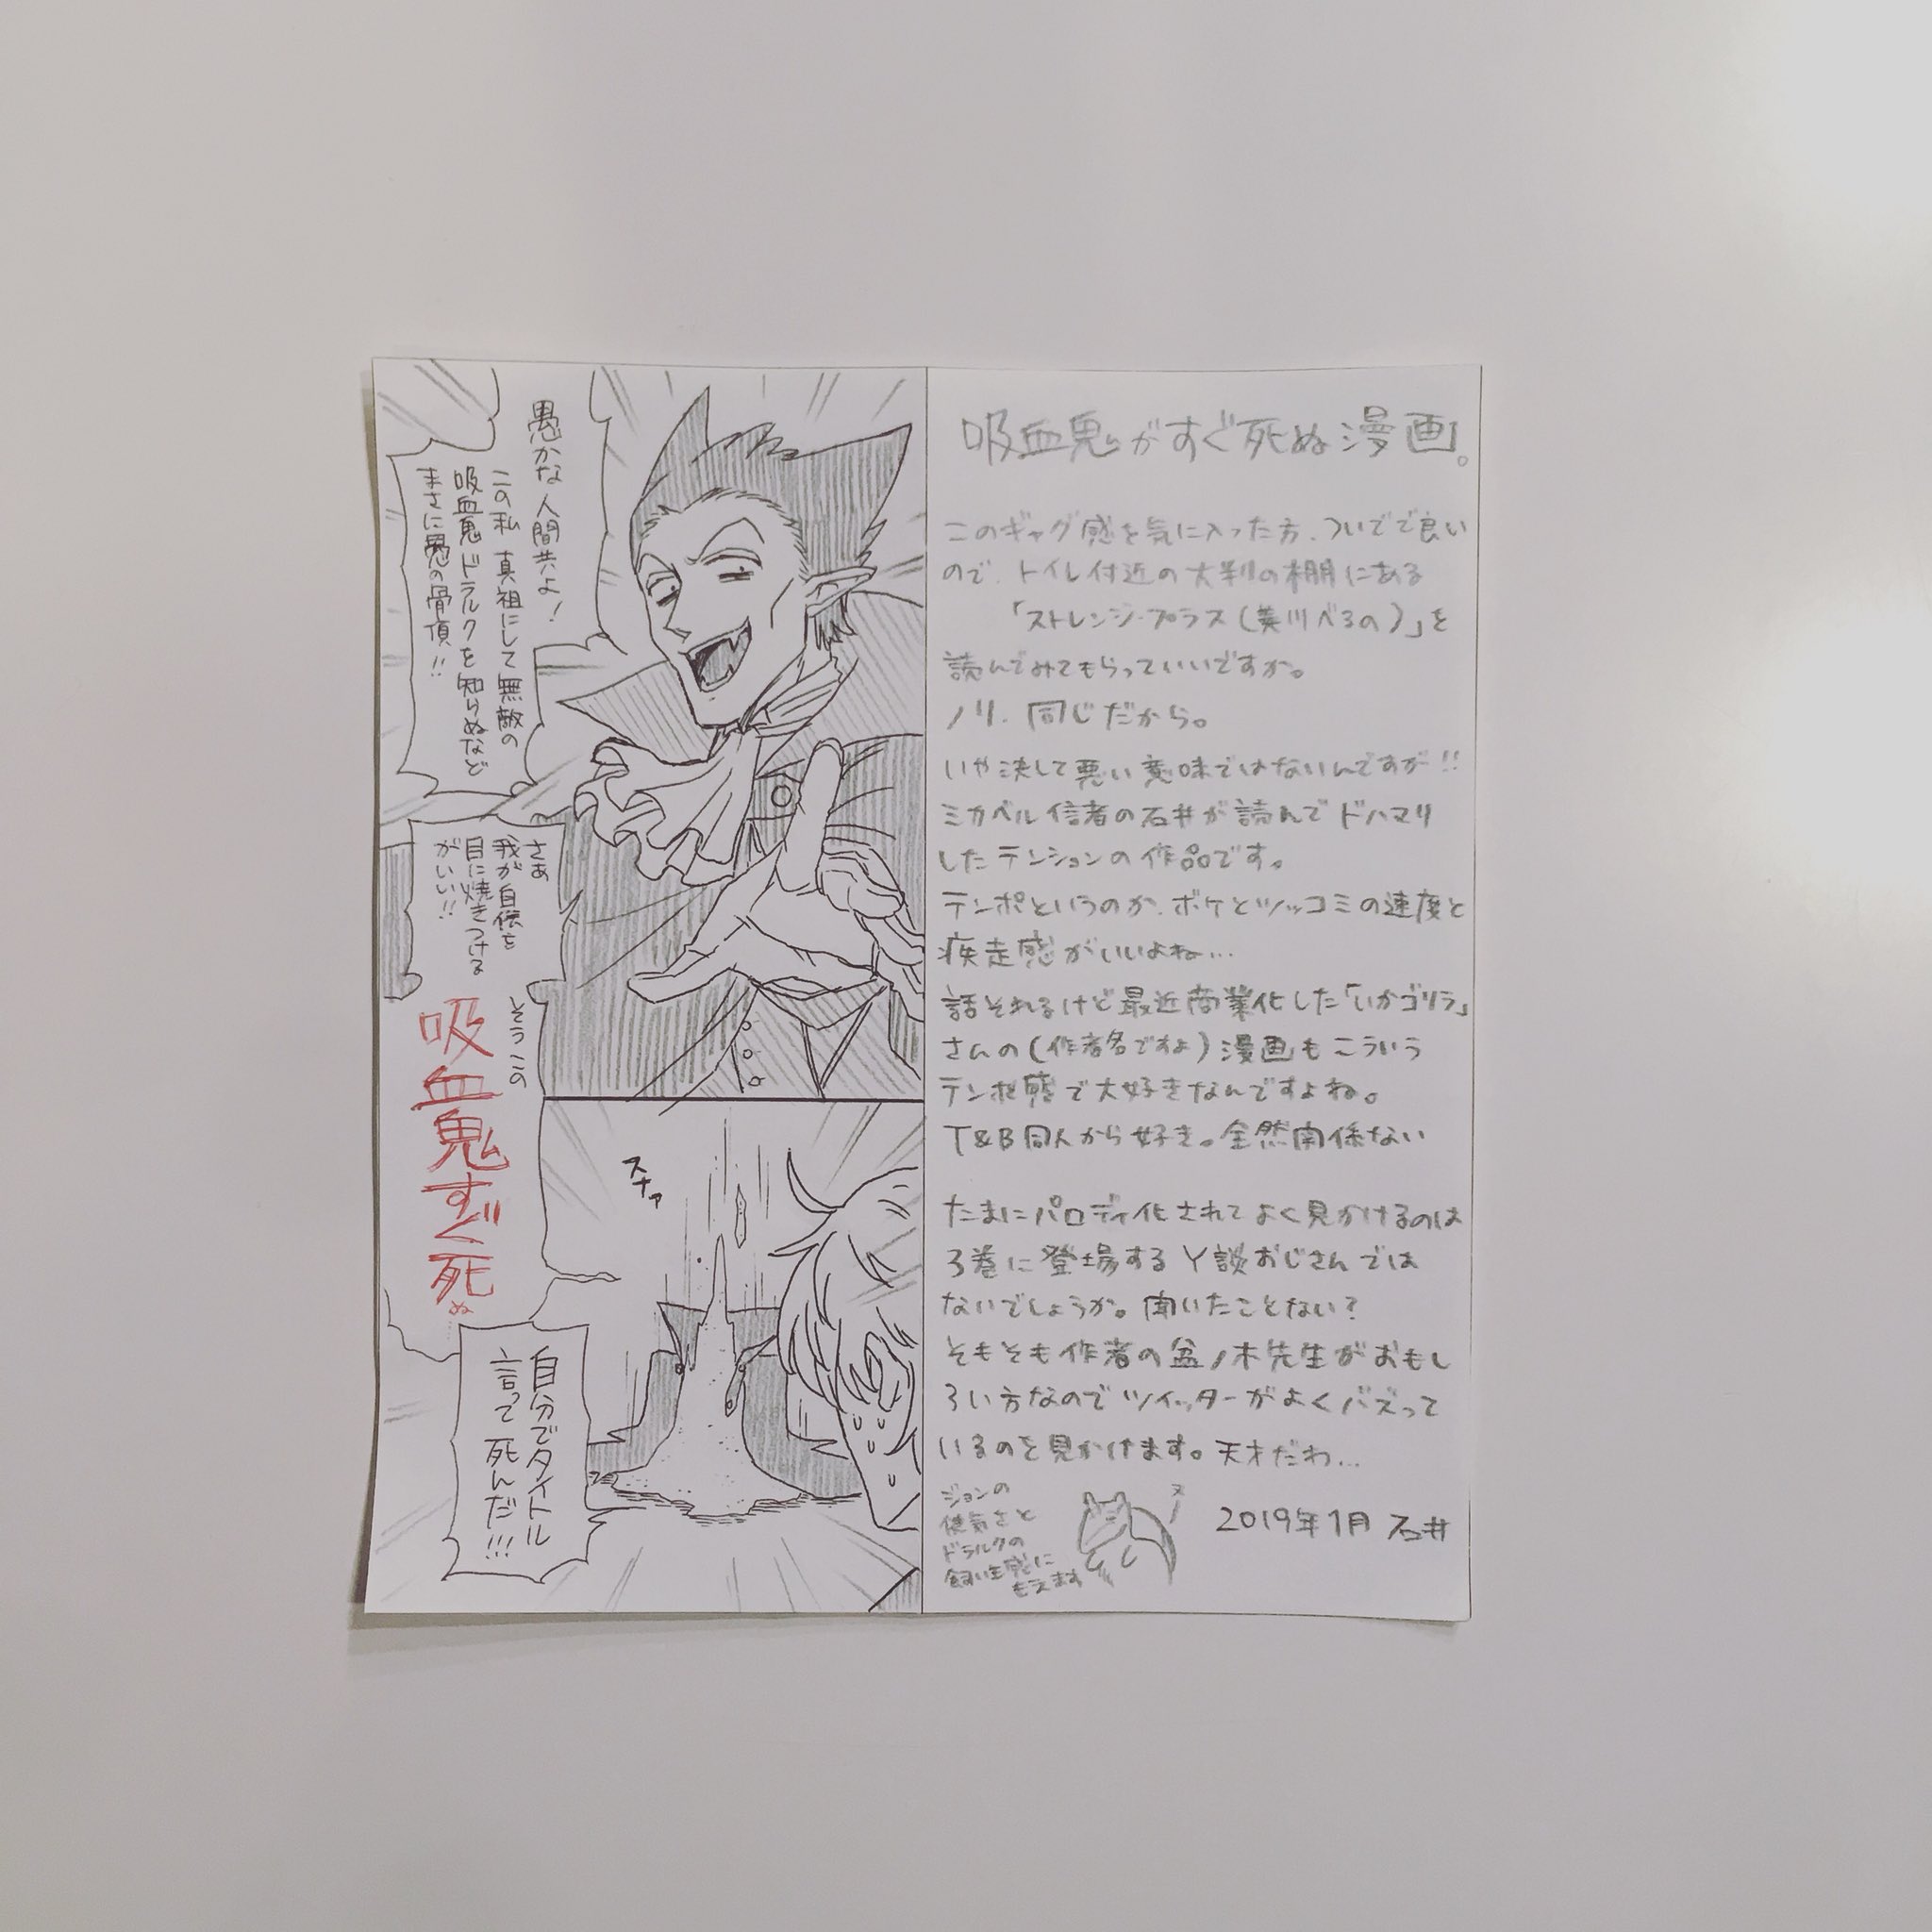 愚かな人間共よ!
この私 真祖にして無敵の
吸血鬼ドラルクを知らぬなど
まさに愚の骨頂!!
さあ
我が自体を
目に焼きつける
がいい!!
そうこの
吸血鬼すぐ死
ぬ
スナァ
自分でタイトル
言って死んだ!!!
吸血鬼がすぐ死ぬ漫画。
このギャグ感を気に入った方、ついでで良い
ので、トイレ付近の大判の棚にある
「ストレンジ・プラス(美川べるの)」を
読んでみてもらっていいですか。
ノリ、同じだから。
いや決して悪い意味ではないんですが!!
ミカベル信者の石井が読んでドハマリ
したテンションの作品です。
テンポというのか、ボケとツッコミの速度と
疾走感がいいよね…
話それるけど最近商業化した「いかゴリラ」
さんの(作者名ですよ)漫画もこういう
テンポ感で大好きなんですよね。
T&B同人から好き。全然関係ない
たまにパロディ化されてよく見かけるのは
3巻に登場するY談おじさんでは
ないでしょうか。聞いたことない?
そもそも作者の盆ノ木先生がおもし
ろい方なのでツイッターがよくバズって
いるのを見かけます。天才だわ…
ジョンの
健気さと
ドラルクの
飼い主感に
もえます
ヌ
2019年1月 石井